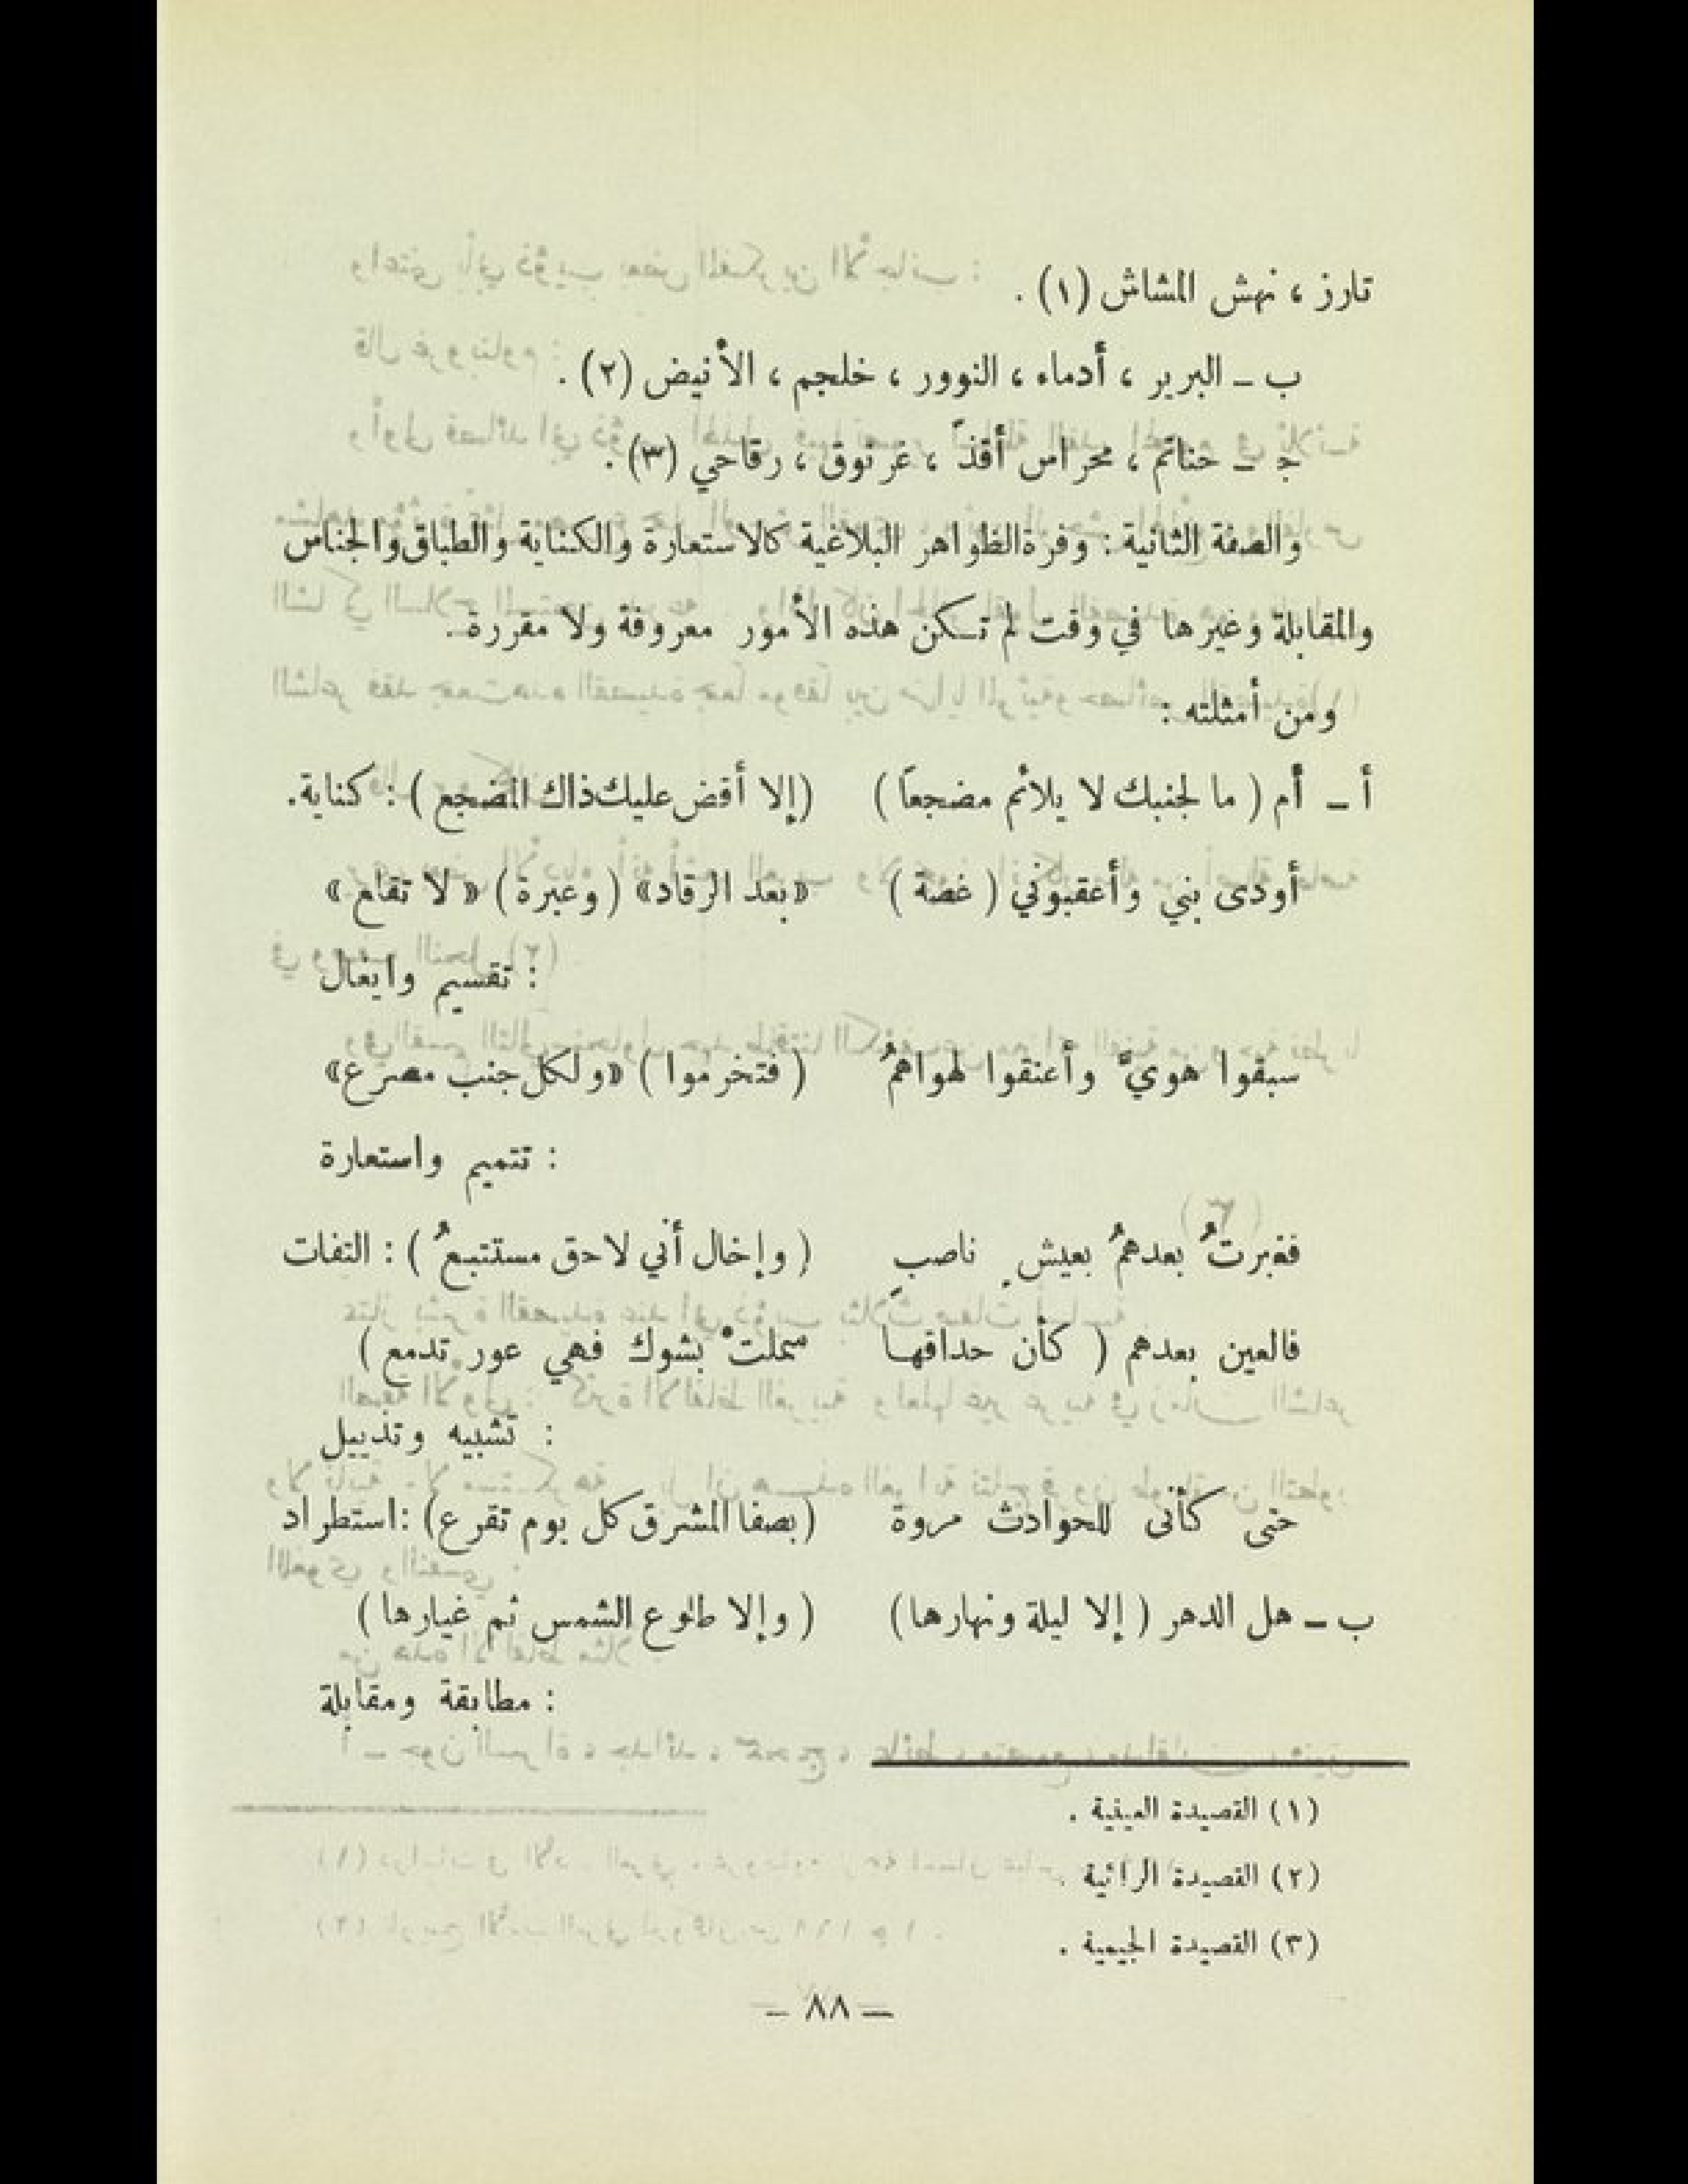 تارز ، نهش المشاش (١) .
ب ــ البرير ، أدماء ، النوور ، خلجم ، الأنيض (٢) .
جـ ــ حناتم ، محراس أقذّ ، غرنوق ، رقاحي (٣) .
والصفة الثانية : وفرة الظواهر البلاغية كالاستعارة والكناية والطباق والجناس
والمقابلة وغيرها في وقت لم تكن هذه الأمور معروفة ولا مقررة .
ومن أمثلته :
أ ــ أم ( ما لجنبك لا يلائم مضجعاً ) ( إلا أقض عليك ذاك المضجع ) : كناية .
أودى بني وأعقبوني ( غصة ) «بعد الرقاد» ( وعبرة ) « لا تقلع »
: تقسيم وايغال
سبقوا هويّ وأعنقوا لهواهمُ ( فتخرموا ) «ولكل جنب مصرع»
: تتميم واستعارة
فغبرتُ بعدهمُ بعيشٍ ناصبٍ ( وإخال أني لاحق مستتبعُ ) : التفات
فالعين بعدهم ( كأن حداقها سملتْ بشوك فهي عور تدمع )
: تشبيه وتذييل
حتى كأنى للحوادث مروة ( بصفا المشرق كل يوم تقرع ) : استطراد
ب ــ هل الدهر ( إلا ليلة ونهارها ) ( وإلا طلوع الشمس ثم غيارها )
: مطابقة ومقابلة
(١) القصيدة العينية .
(٢) القصيدة الرائية .
(٣) القصيدة الجيمية .
— ٨٨ —